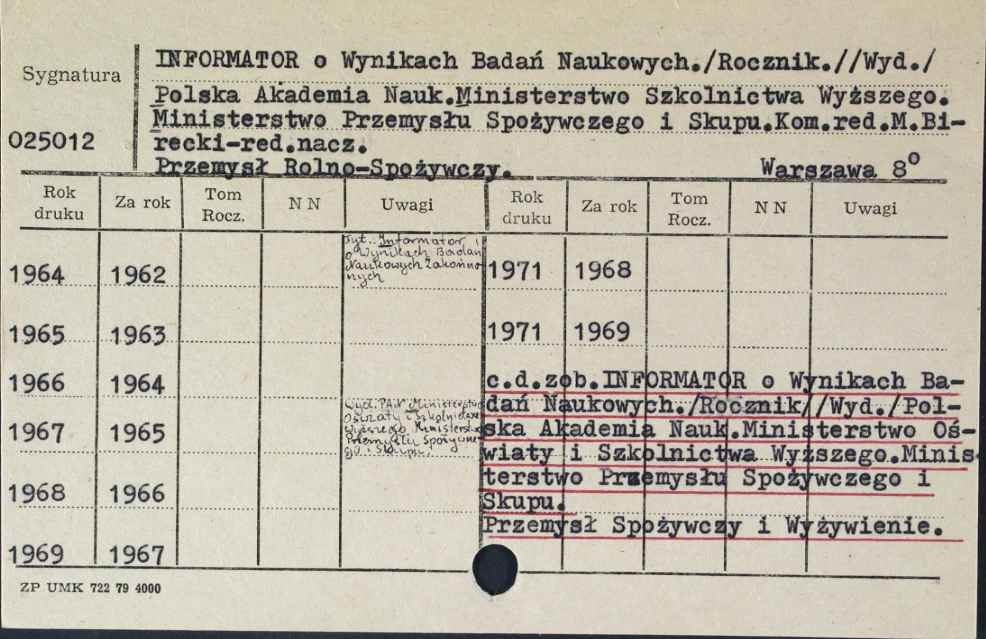 INFORMATOR o Wynikach Badań Naukowych./Rocznik.//Wyd./
Sygnatura
Polska Akademia Nauk.Ministerstwo Szkolnictwa Wyższego.
025012
Ministerstwo Przemysłu Spożywczego i Skupu.Kom.red.M.Bi-
recki-red.nacz.
Przemysł Rolno-Spożywczy. Warszawa 8°
Rok druku Za rok Tom Rocz. N N Uwagi Rok druku Za rok Tom Rocz. N N Uwagi
Tyt.: Informator
o Wynikach Badań
Naukowych Zakończo-
nych
1964 1962 1971 1968
1965 1963 1971 1969
1966 1964
wyd. PAN Ministerstwo
Oświaty i Szkolnictwa
Wyższego Ministerstwo
Przemysłu Spożywcze-
go i Skupu.
1967 1965
1968 1966
1969 1967
c.d.zob.INFORMATOR o Wynikach Ba-
dań Naukowych./Rocznik//Wyd./Pol-
ska Akademia Nauk.Ministerstwo Oś-
wiaty i Szkolnictwa Wyższego.Minis-
terstwo Przemysłu Spożywczego i
Skupu.
Przemysł Spożywczy i Wyżywienie.
ZP UMK 722 79 4000